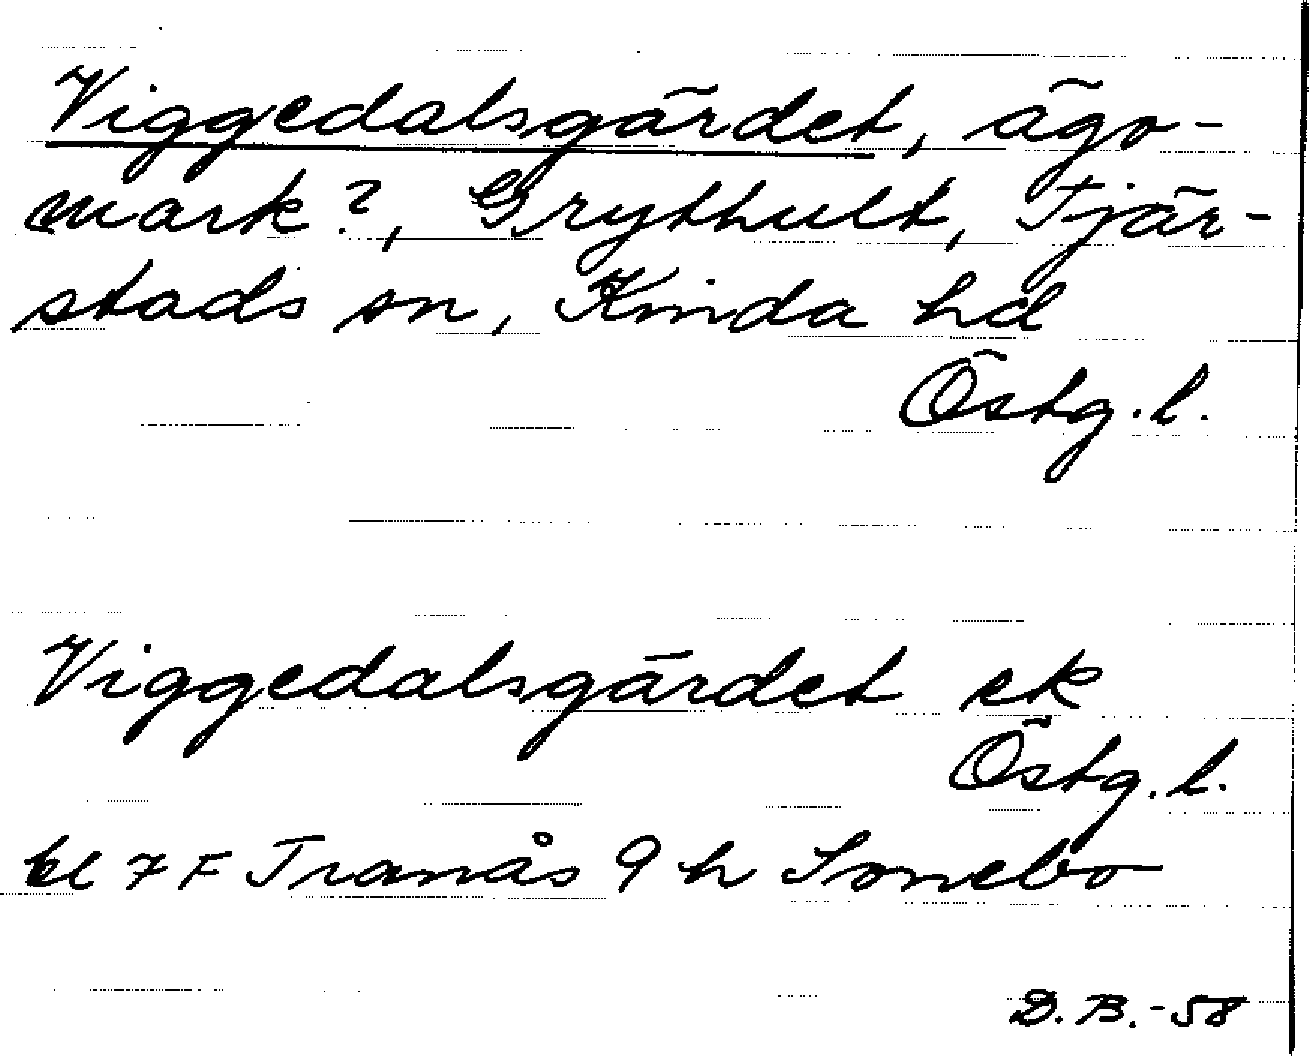 Viggedalsgärdet, ägo-
mark?, Grythult, Tjär-
stads sn, Kinda hd
Östg.l.
Viggedalsgärdet ek
Östg.l.
bl 7 F Tranås 9 h Sonebo
D.B.-58